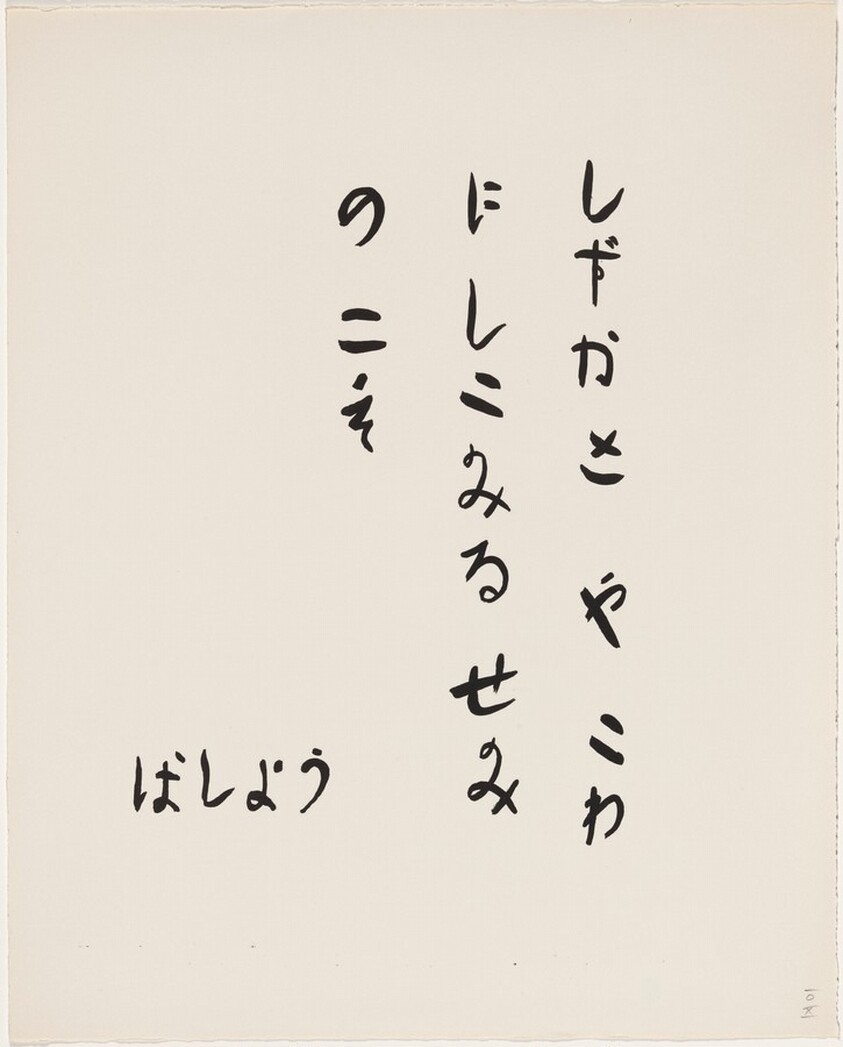 しずかさ や いわ
に しいみる せみ
の こえ
ばしよう
10 X